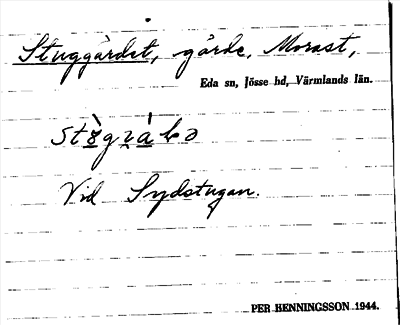 Stuggärdet, gärde, Morast,
Eda sn, Jösse hd, Värmlands län.
Vid Sydstugan.
PER HENNINGSSON 1944.